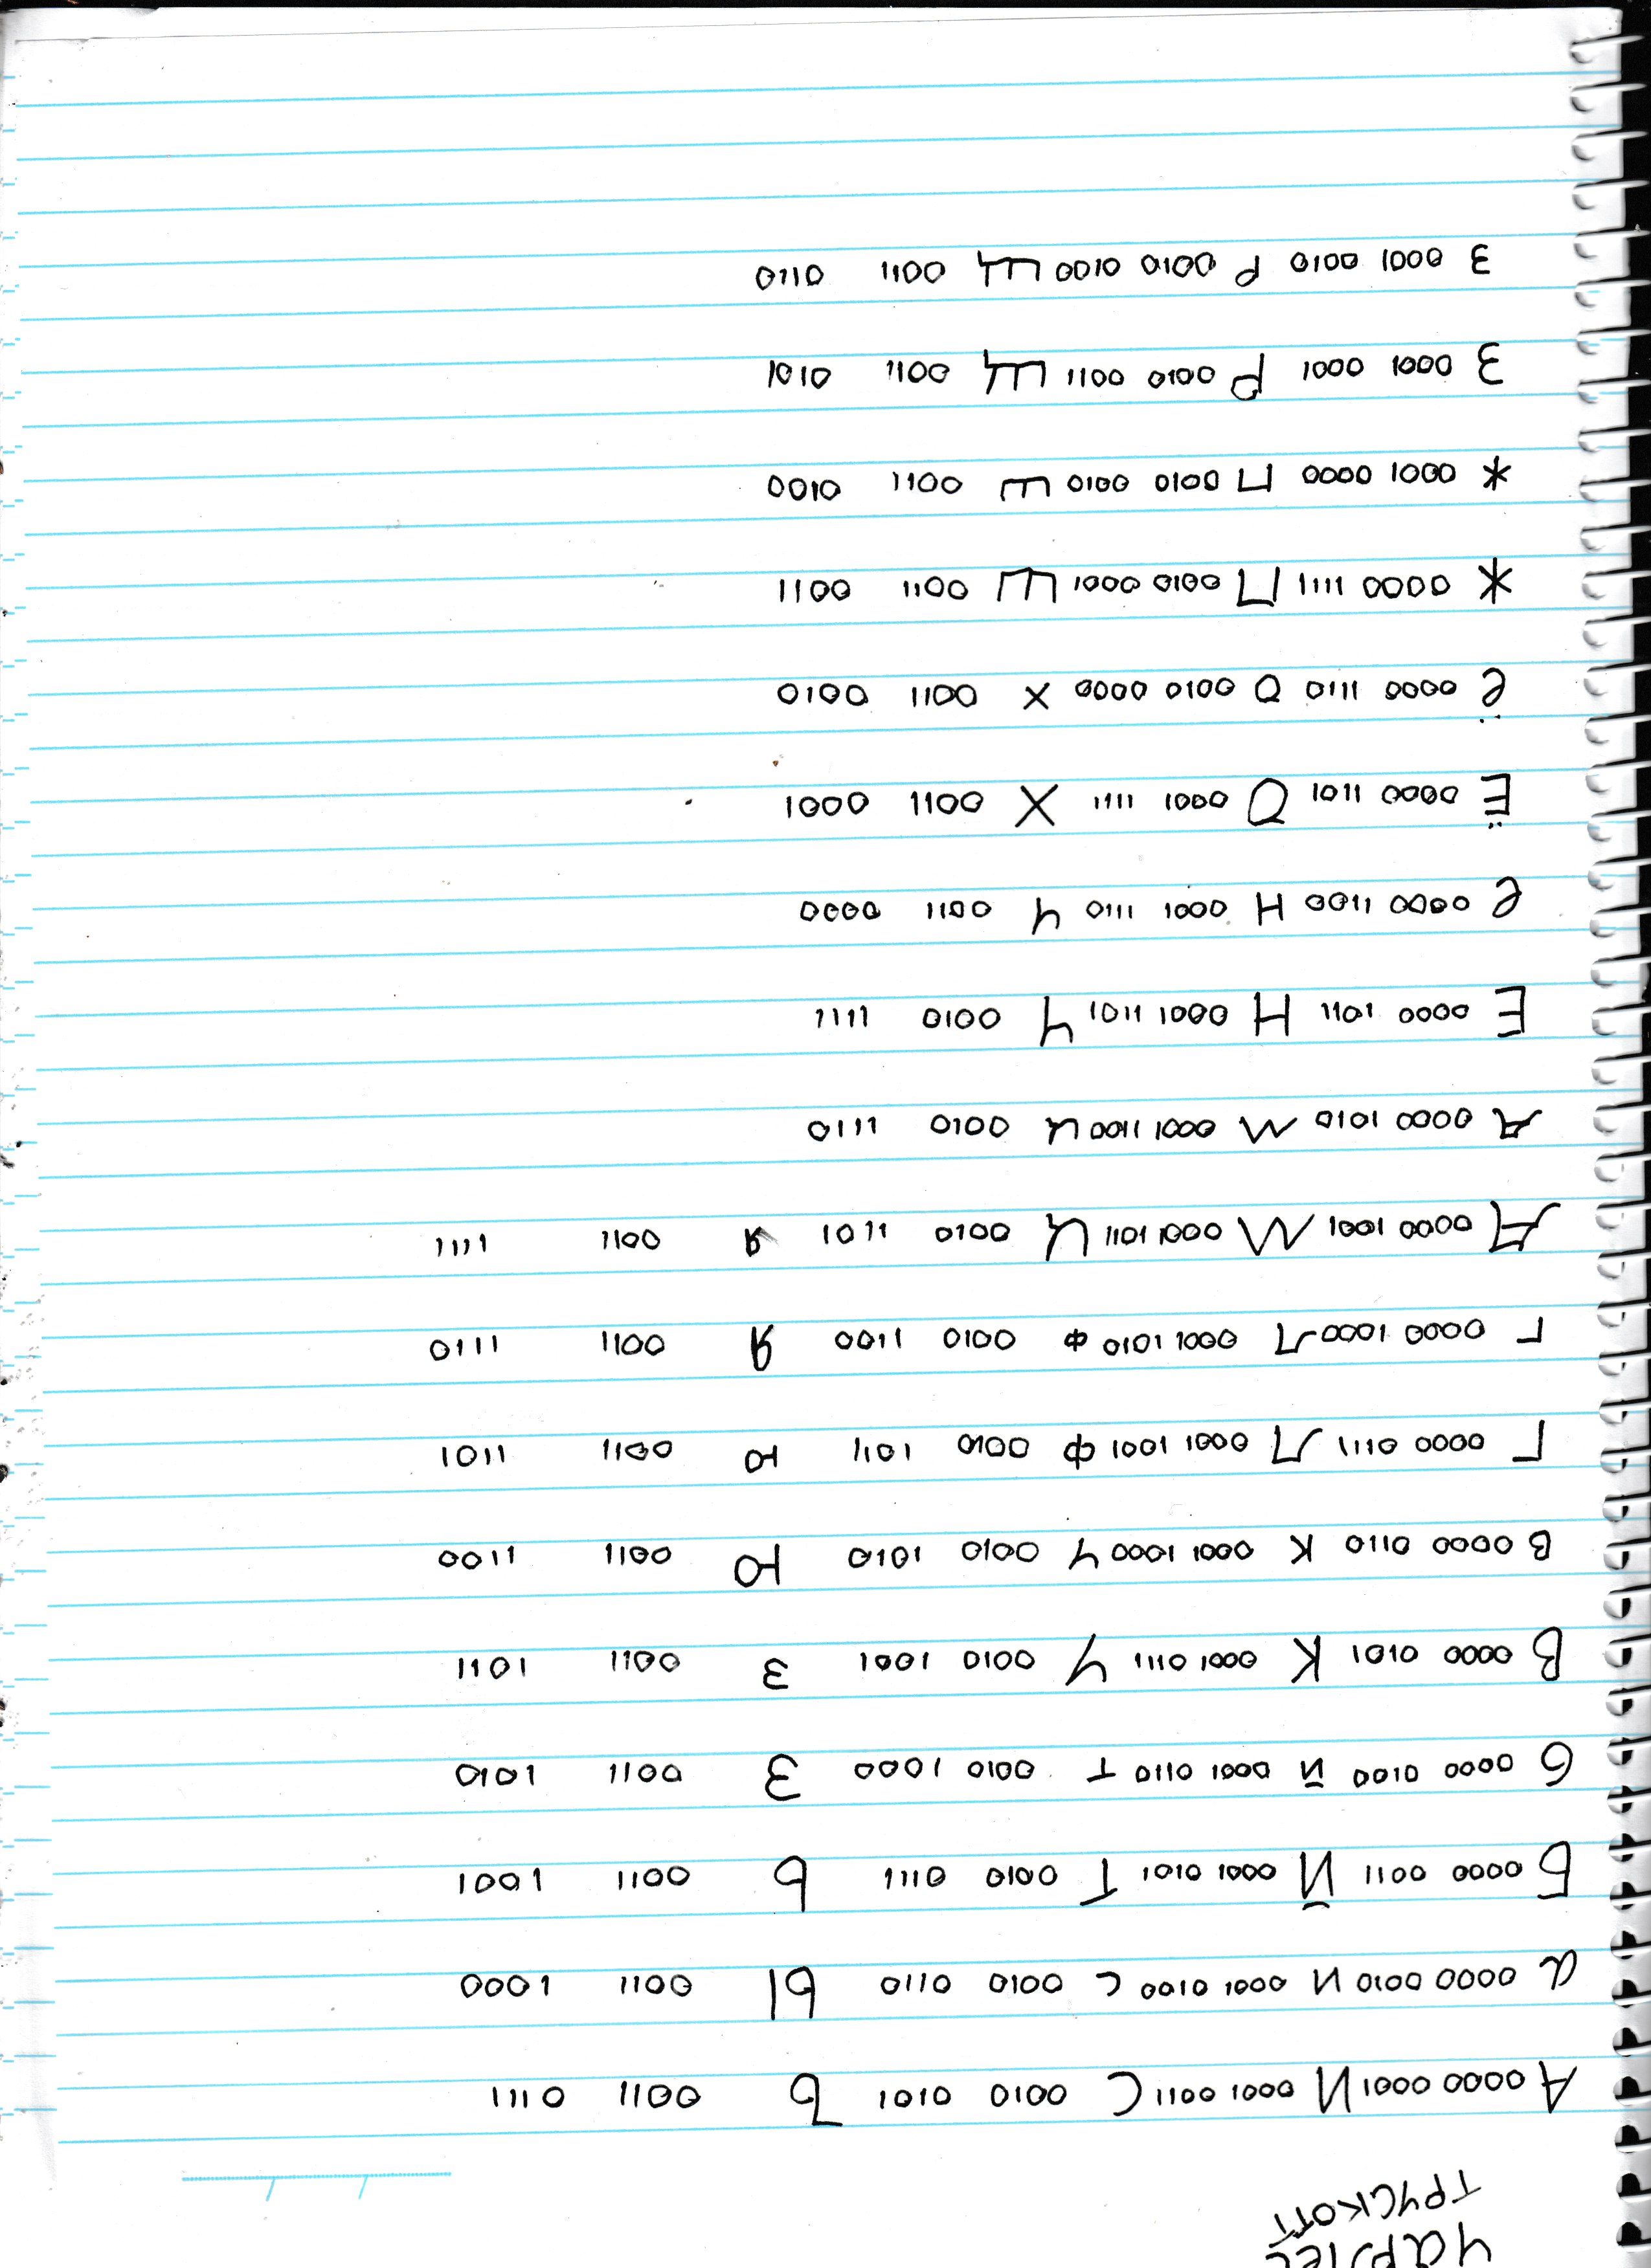 Чарлес
Трускотт
А 0000 0001 И 0001 0011 С 0010 0101 Ъ 0011 0111
а 0000 0010 и 0001 0100 с 0010 0110 Ы 0011 1000
Б 0000 0011 Й 0001 0101 Т 0010 0111 Ь 0011 1001
б 0000 0100 й 0001 0110 т 0010 1000 З 0011 1010
В 0000 0101 К 0001 0111 У 0010 1001 з 0011 1011
в 0000 0110 к 0001 1000 у 0010 1010 Ю 0011 1100
Г 0000 0111 Л 0001 1001 Ф 0010 1011 ю 0011 1101
г 0000 1000 л 0001 1010 ф 0010 1100 Я 0011 1110
Д 0000 1001 М 0001 1011 Ц 0010 1101 я 0011 1111
д 0000 1010 м 0001 1100 ц 0010 1110
Е 0000 1011 Н 0001 1101 Ч 0010 1111
е 0000 1100 н 0001 1110 ч 0011 0000
Ё 0000 1101 О 0001 1111 Х 0011 0001
ё 0000 1110 о 0010 0000 х 0011 0010
Ж 0000 1111 П 0010 0001 Ш 0011 0011
ж 0001 0000 п 0010 0010 ш 0011 0100
З 0001 0001 Р 0010 0011 Щ 0011 0101
з 0001 0010 р 0010 0100 щ 0011 0110